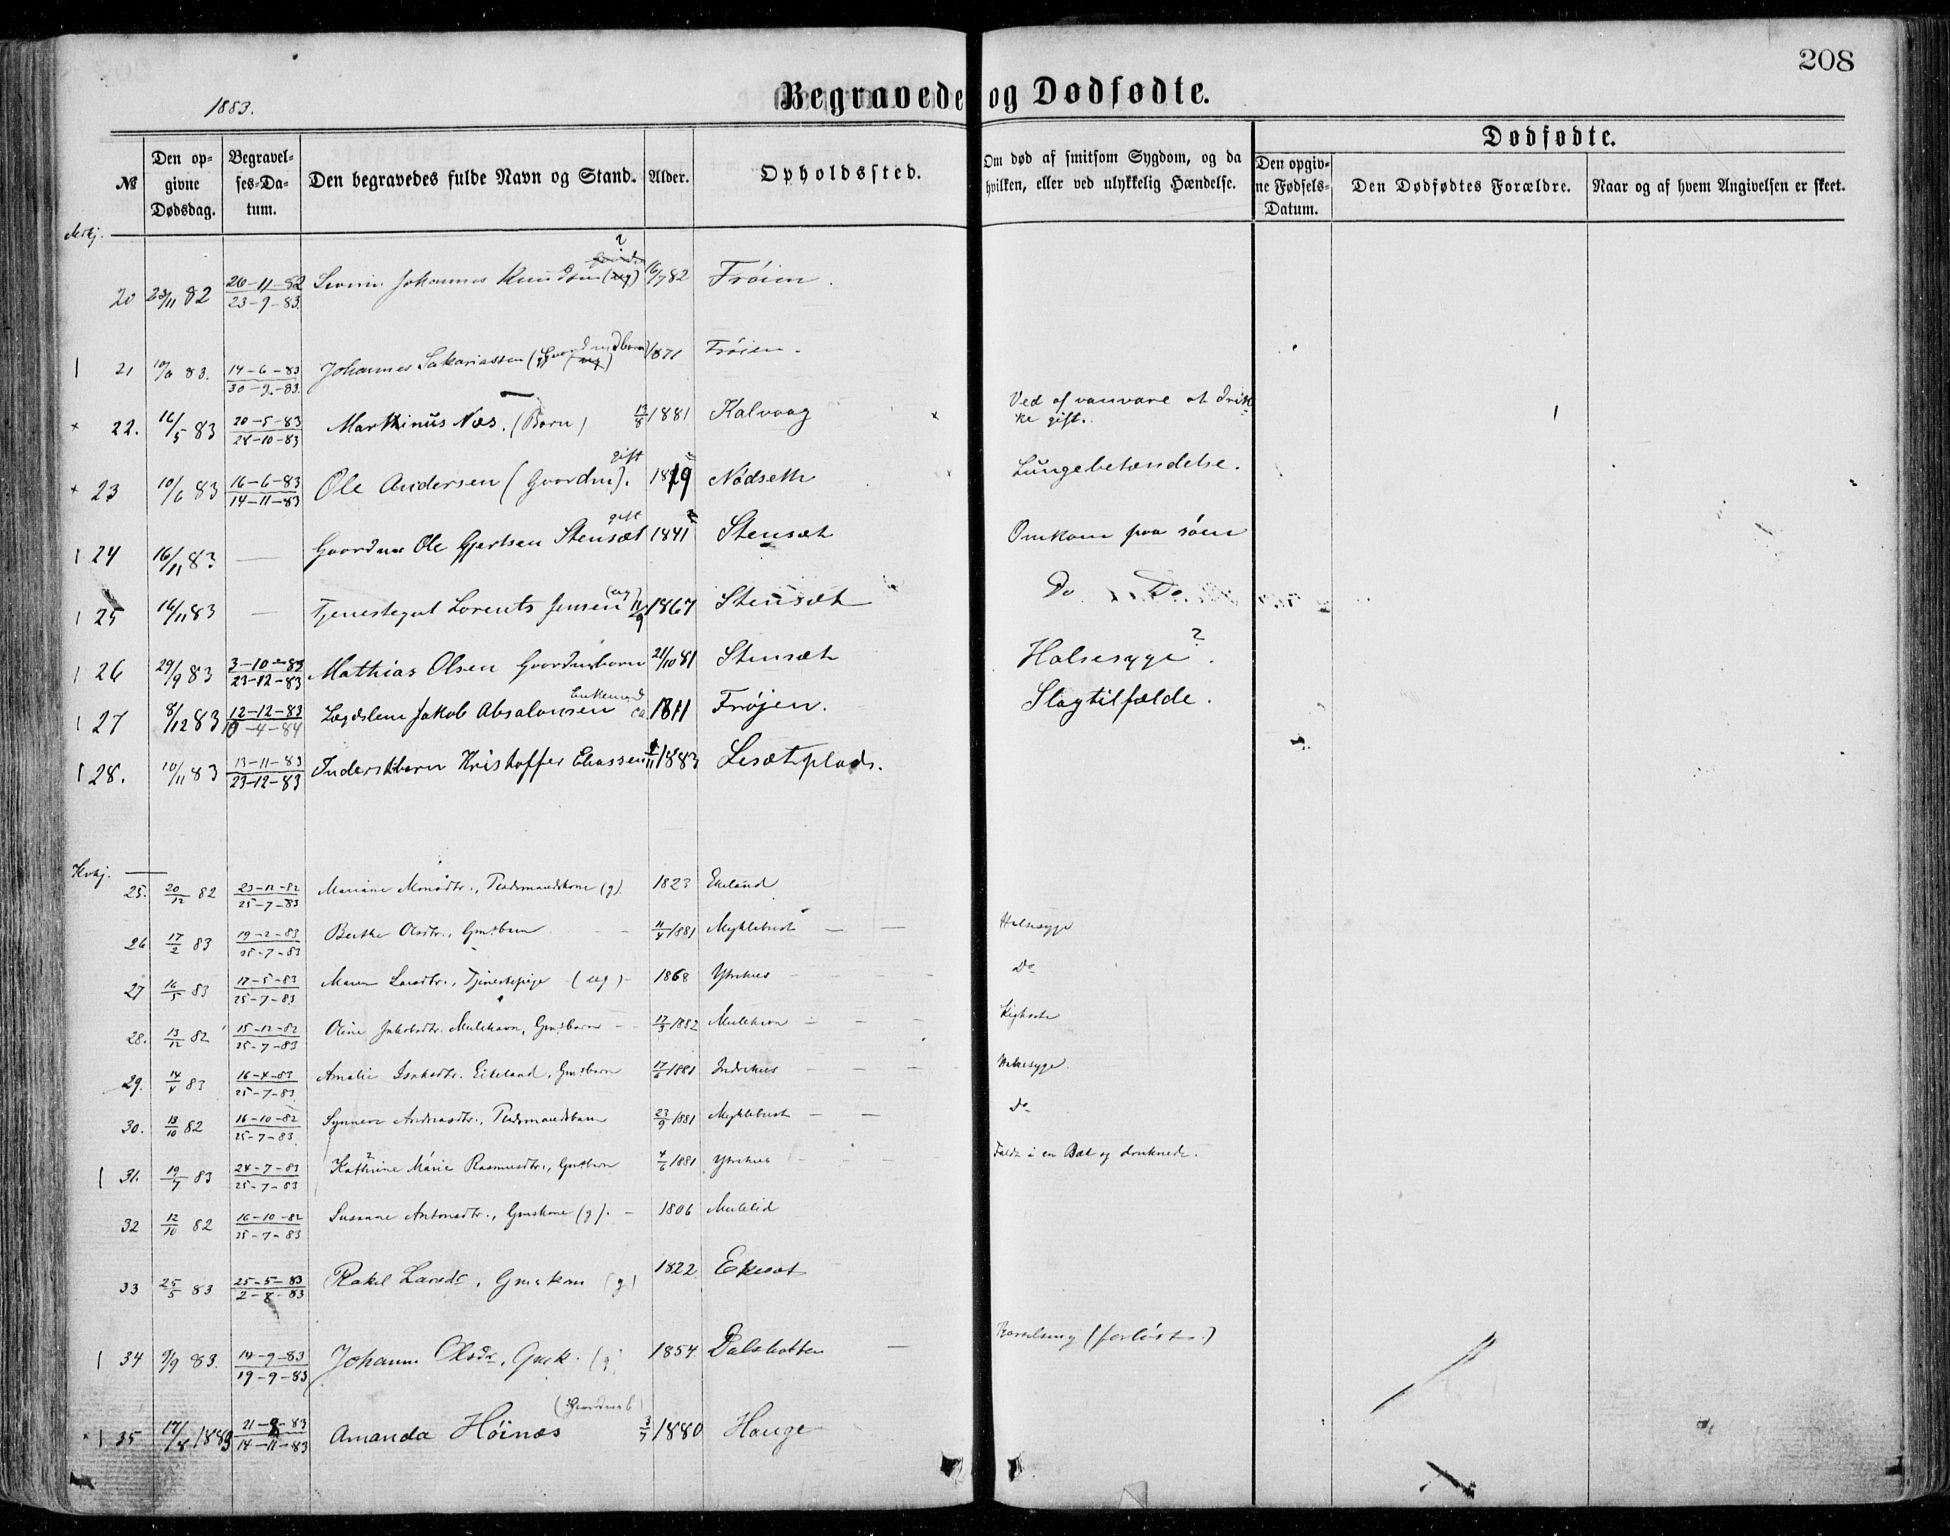 208
1883.
Begravede og Dødfødte.
№
Den opgivne Dødsdag.
Begravelses-Datum.
Den begravedes fulde Navn og Stand.
Alder.
Opholdssted.
Om død af smitsom Sygdom, og da hvilken, eller ved ulykkelig Hændelse.
Dødfødte.
Den opgivne Fødsels-Datum.
Den Dødfødtes Forældre.
Naar og af hvem Angivelsen er skeet.
20 23/11 82 26-11-82 23-9-83 Severin Johannes Knudsen 16/7 82 Frøien.
21 83. 14-6-83 30-9-83 Johannes Sakariassen 1871 Frøien.
22. 16/5 83 20-5-83 28-10-83 Marthinus Næs. (Barn) 13/8 1881 Kalvaag Ved af vanvare at drikke gift.
23 10/6 83 16-6-83 14-11-83 Ole Andersen (Gaardm). gift Nødseth Lungebetændelse.
24 16/11 83 — Gaardm Ole Gjertsen Stensæt gift 1841 Stensæt Omkom paa søen
25 16/11 83 — Tjenestegut Lorents Jensen (ug) 11/9 1867 Stensæt Do Do
26 29/9 83 3-10-83 23-12-83 Mathias Olsen Gaardmsbarn 21/10 81 Stensæt Halsesyge ?
27 8/12 83 12-12-83 -4-84 Lægdslem Jakob Absalonsen Enkemand ca 1811 Frøjen. Slagtilfælde.
28. 10/11 83 13-11-83 23-12-83 Inderstbarn Kristoffer Eliassen 1883 Lesætplads.
Kvkj.
25. 20/12 82 23-12-82 25-7-83 Mariane Monsdtr., Pladsmandskone (g) 1823 Ekeland
26 17/2 83 19-2-83 25-7-83 Berthe Olsdtr., Gmsbarn 11/4 1881 Myklebust — — Halsesyge
27 16/5 83 17-5-83 25-7-83 Maren Larsdtr., Tjenestepige (ug) - 1868 Ytrehus Do
28. 13/12 82 15-12-82 25-7-83 Oline Jakobsdtr. Mulehavn, Gmsbarn 17/3 1882 Mulehavn
29. 14/4 83 16-4-83 25-7-83 Amalie Isaksdtr. Eikeland, Gmsbarn 17/6 1881 Indrehus Halsesyge.
30. 13/10 82 16-10-82 25-7-83 Synneve Andreasdtr., Pladsmandsbarn 23/9 1881 Myklebust — — Do
31. 19/7 83 24-7-83 25-7-83 Kathrine Marie Rasmusdtr., Gmsbarn 4/6 1881 Ytrehus Faldt i en Bæk og druknede.
32 12/10 82 16-10-82 25-7-83 Susanne Antonsdtr., Gmskone (g). - 1806 Mulelid
33 25/5 83 25-5-83 2-8-83 Rakel Larsdt, Gmskone (g) 1822 Ekesæt
34 9/9 83. 14-9-83 19-9-83 Johanne Olsdt, Gmk. (g) 1854. Dalsbotten Barselseng (forløst.)
35 17/8 1883 21-8-83 14-11-83 Amanda Høinæs 3/7 1880 Hauge